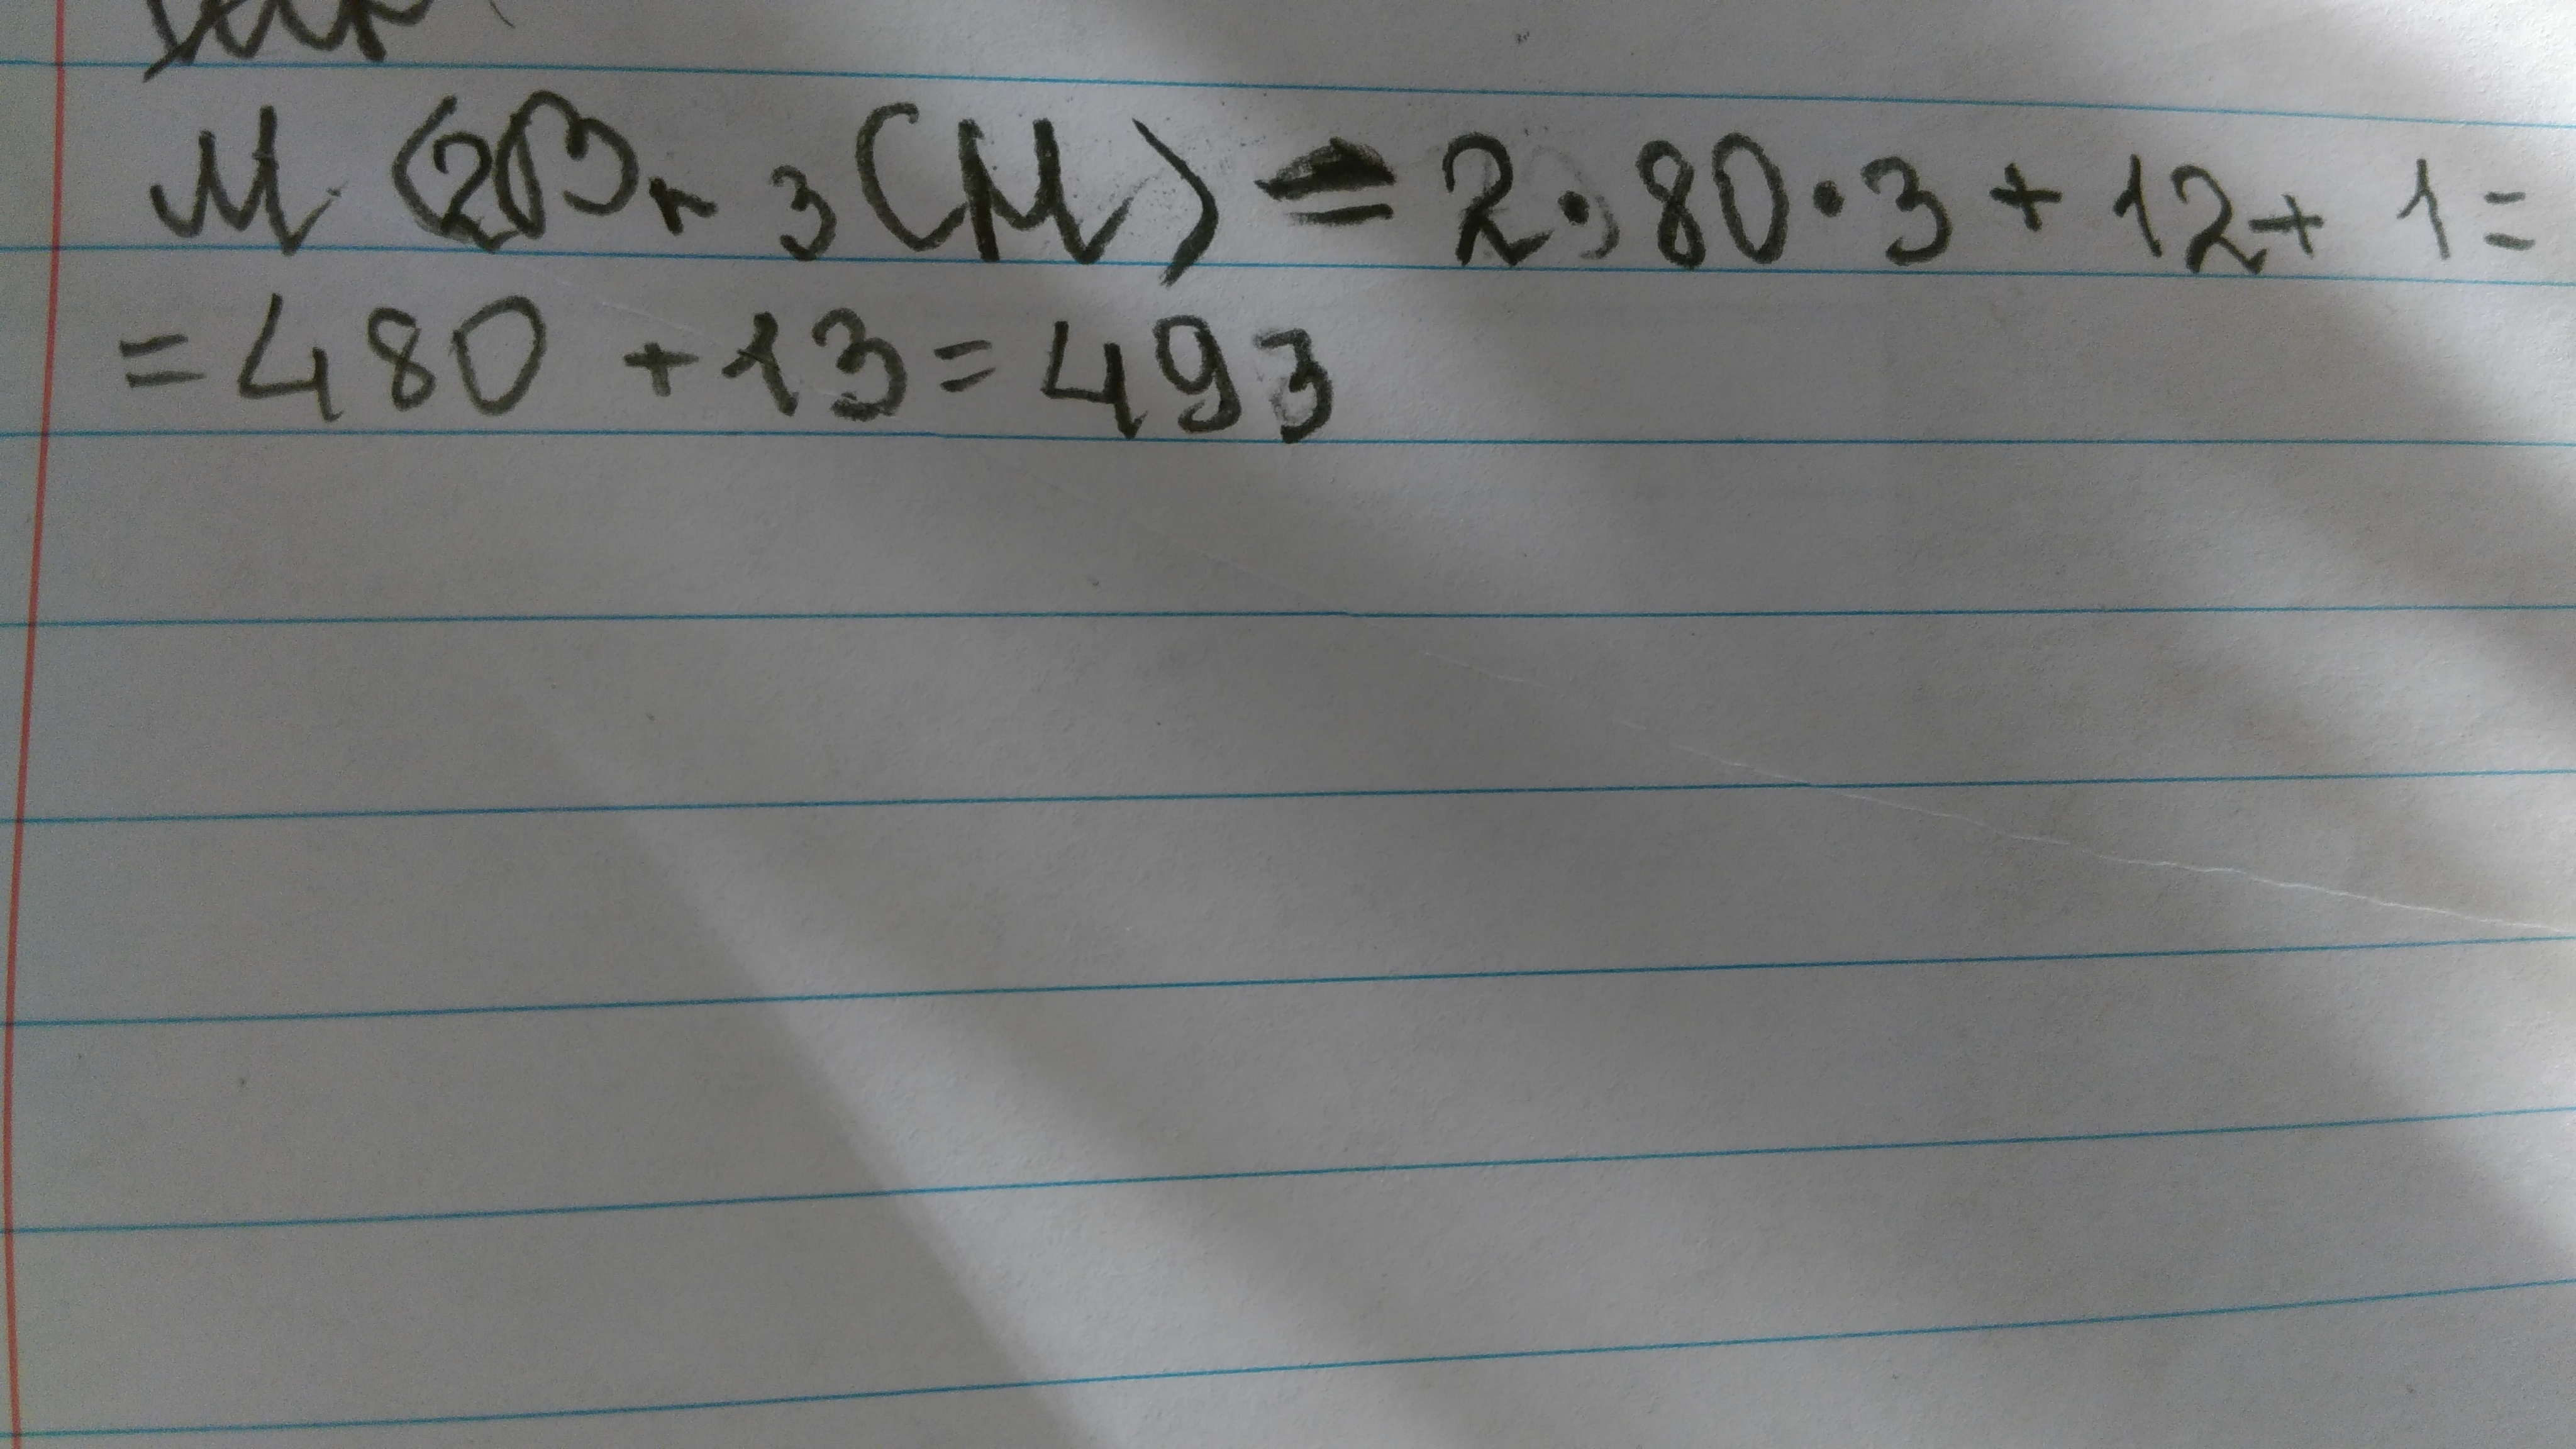 M (2Br 3 CH) = 2 · 80 · 3 + 12 + 1 =
= 480 + 13 = 493